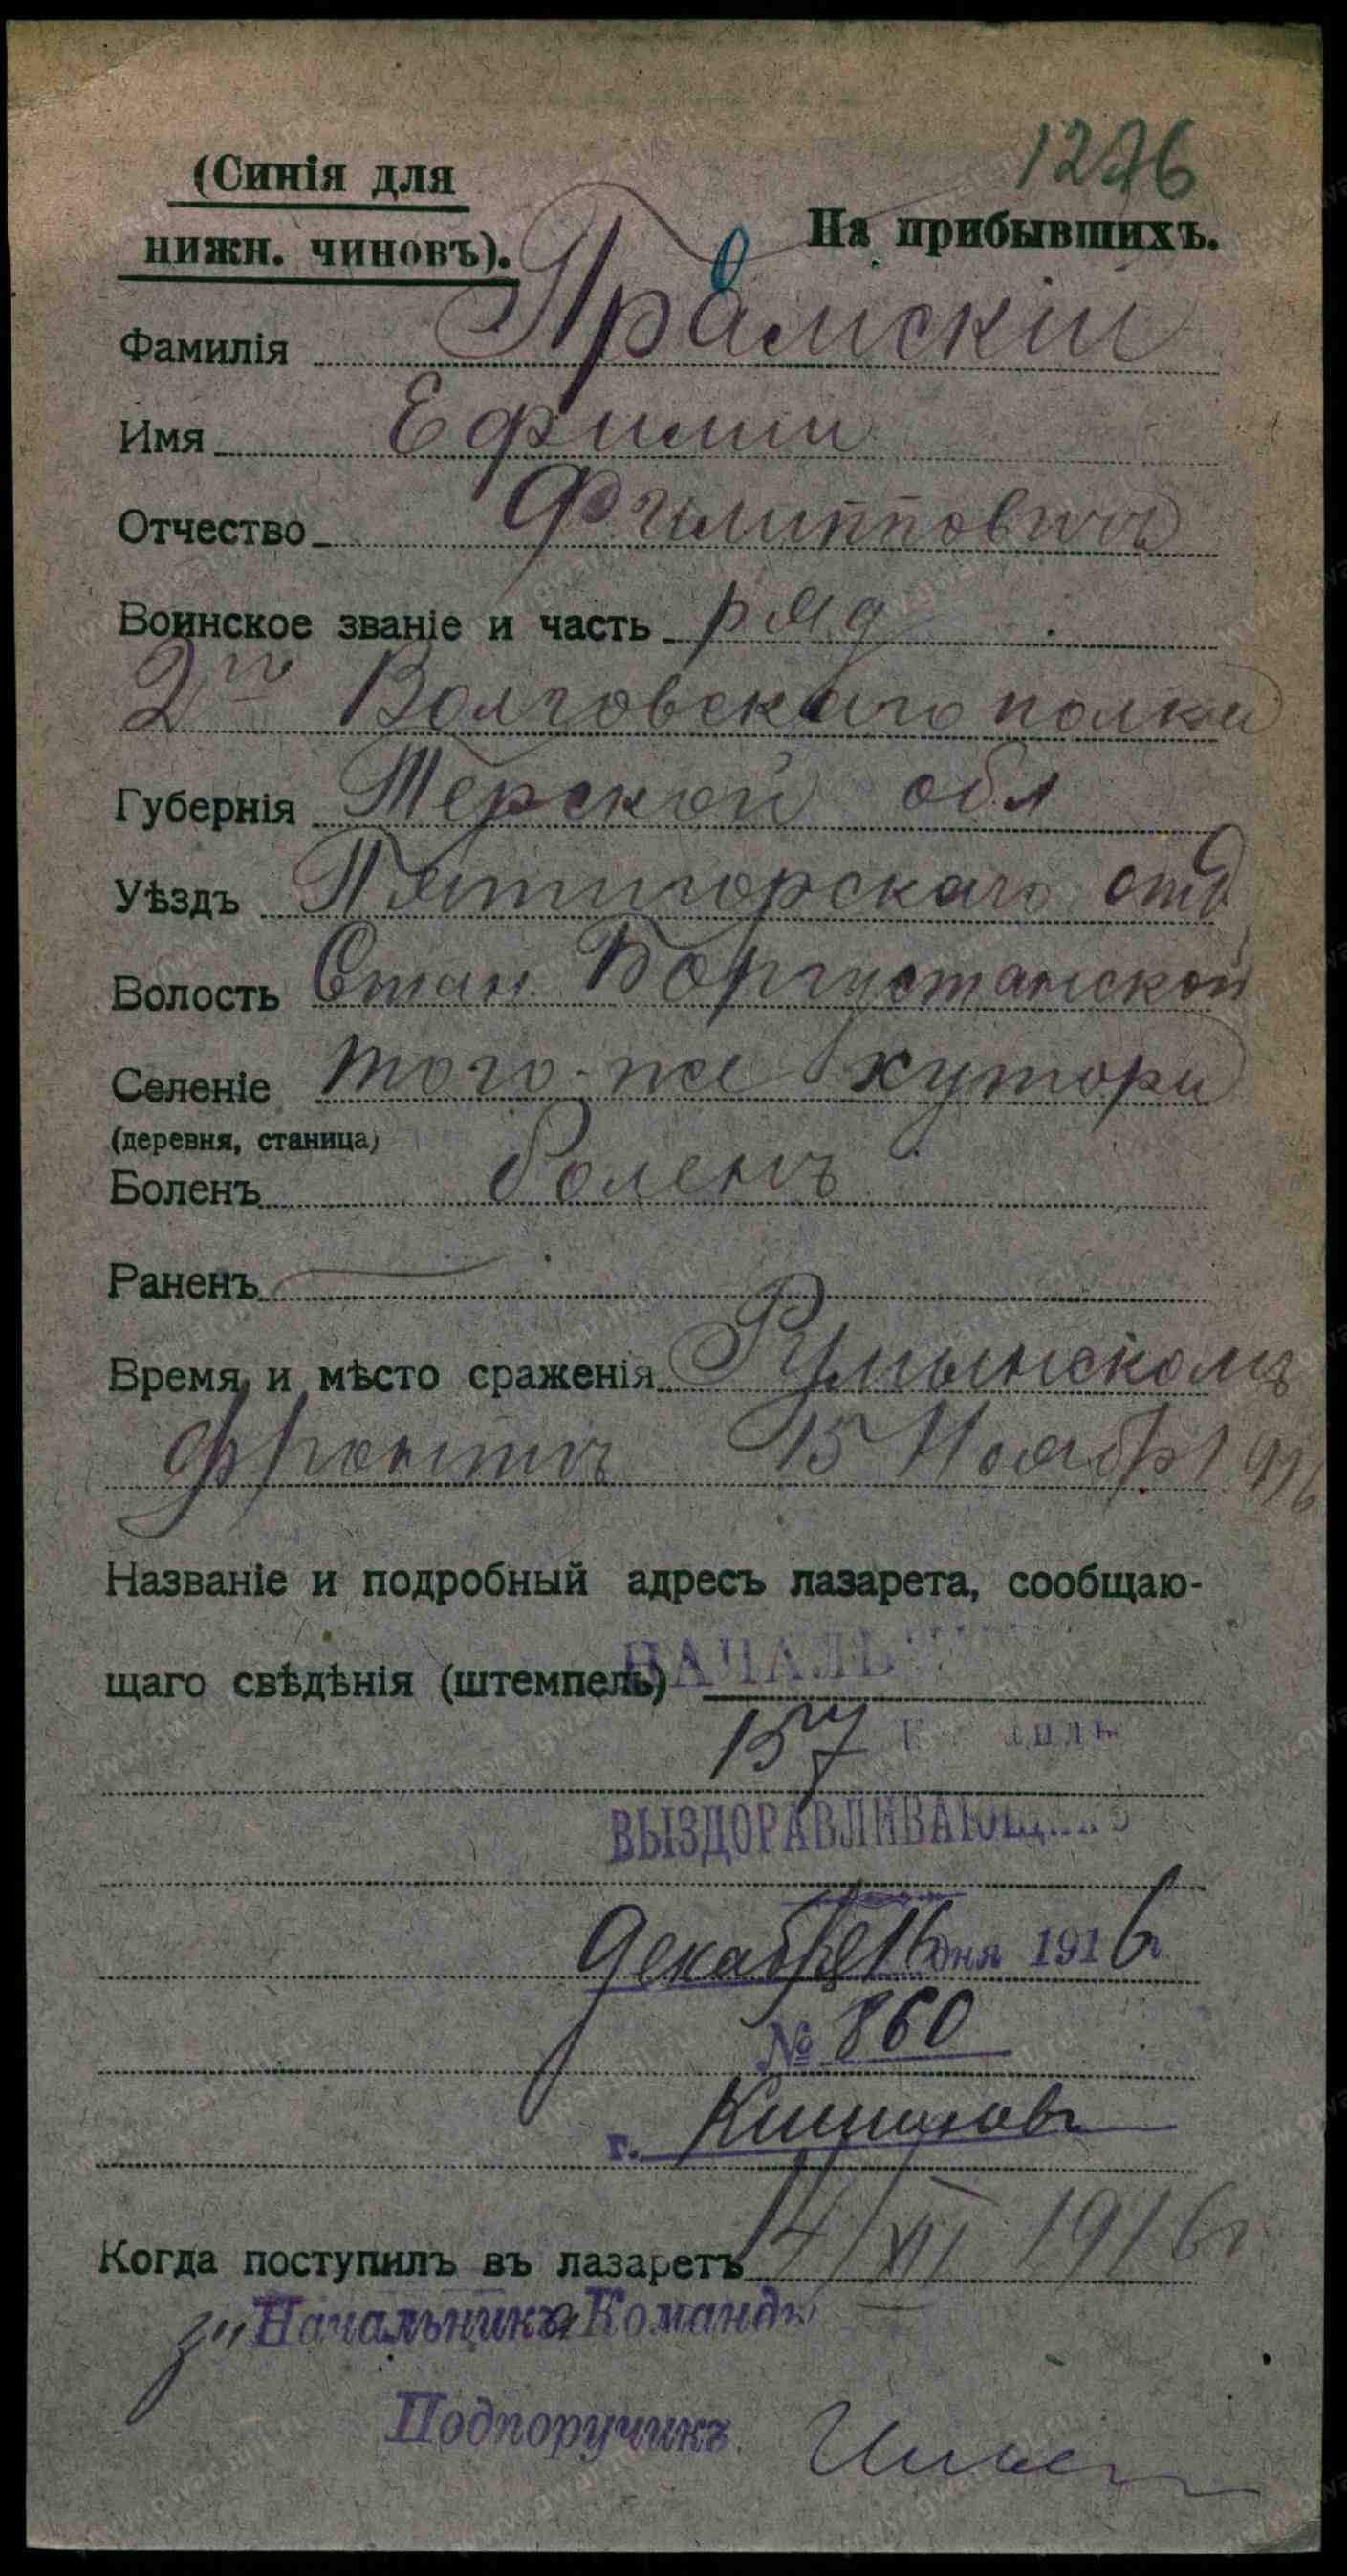 1276
(Синія для
нижн. чиновъ).
На прибывшихъ.
Фамилія Прамскій
Имя Ефимій
Отчество Филипповичъ
Воинское званіе и часть ряд
2го Волговскаго полка
Губернія Терской обл
Уѣздъ Пятигорскаго отд
Волость Стан. Боргустанской
Селеніе того-же хутора
(деревня, станица)
Боленъ боленъ
Раненъ
Время и мѣсто сраженія Румынскомъ
фронтъ 15 Ноябр 1916
Названіе и подробный адресъ лазарета, сообщаю-
щаго свѣдѣнія (штемпель) НАЧАЛЬ
157
ВЫЗДОРАВЛИВАЮЩИХЪ
Декабря 16 дня 1916 г.
№ 860
г. Кишиневъ
Когда поступилъ въ лазаретъ 14/XII 1916 г
"Начальникъ Команды
Подпоручикъ